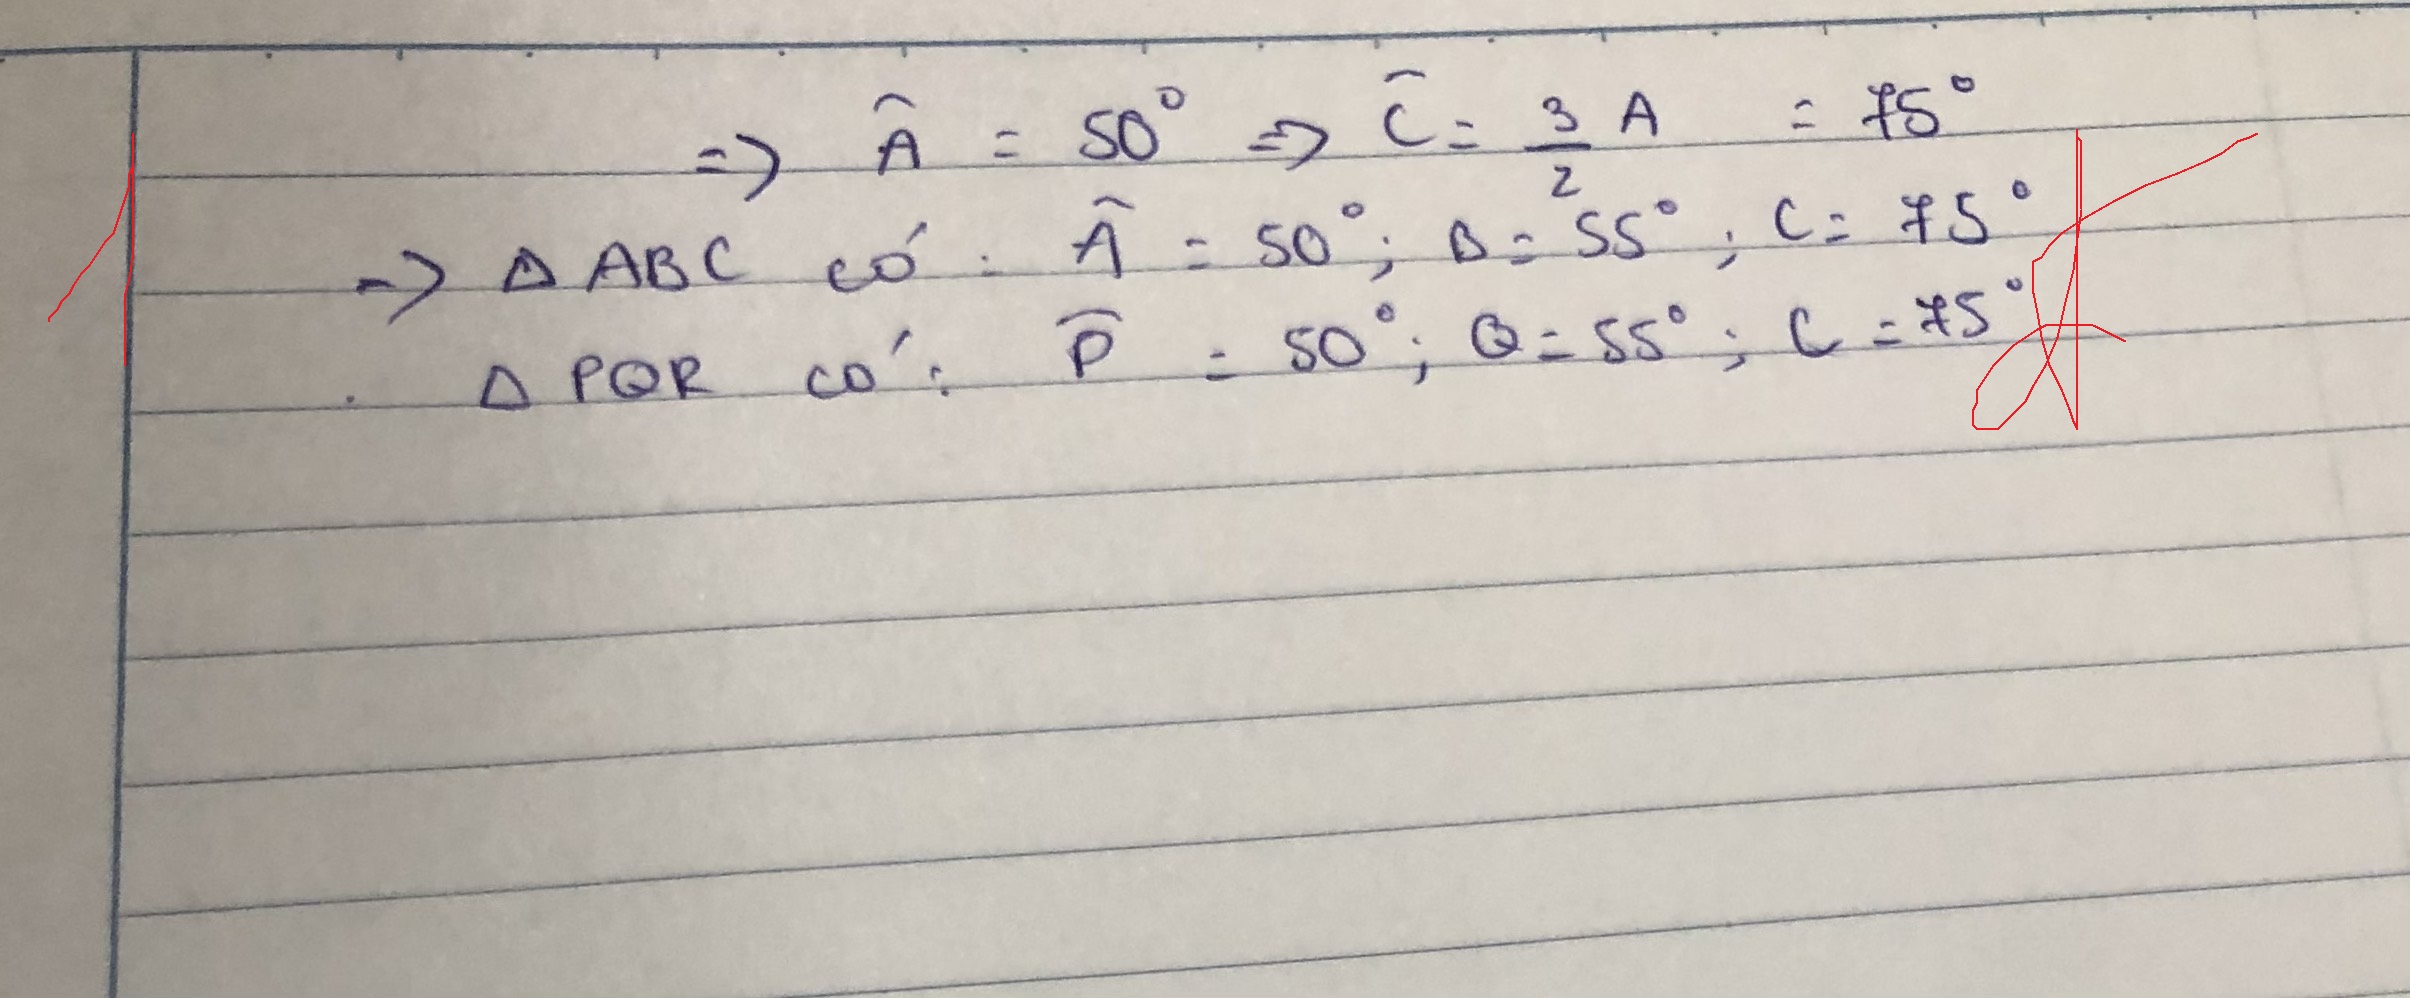 => Â = 50° => Ĉ = 3/2 A = 75°
=> Δ ABC có : Â = 50° ; B = 55° ; C = 75°
Δ PQR có : P̂ = 50° ; Q = 55° ; C = 75°